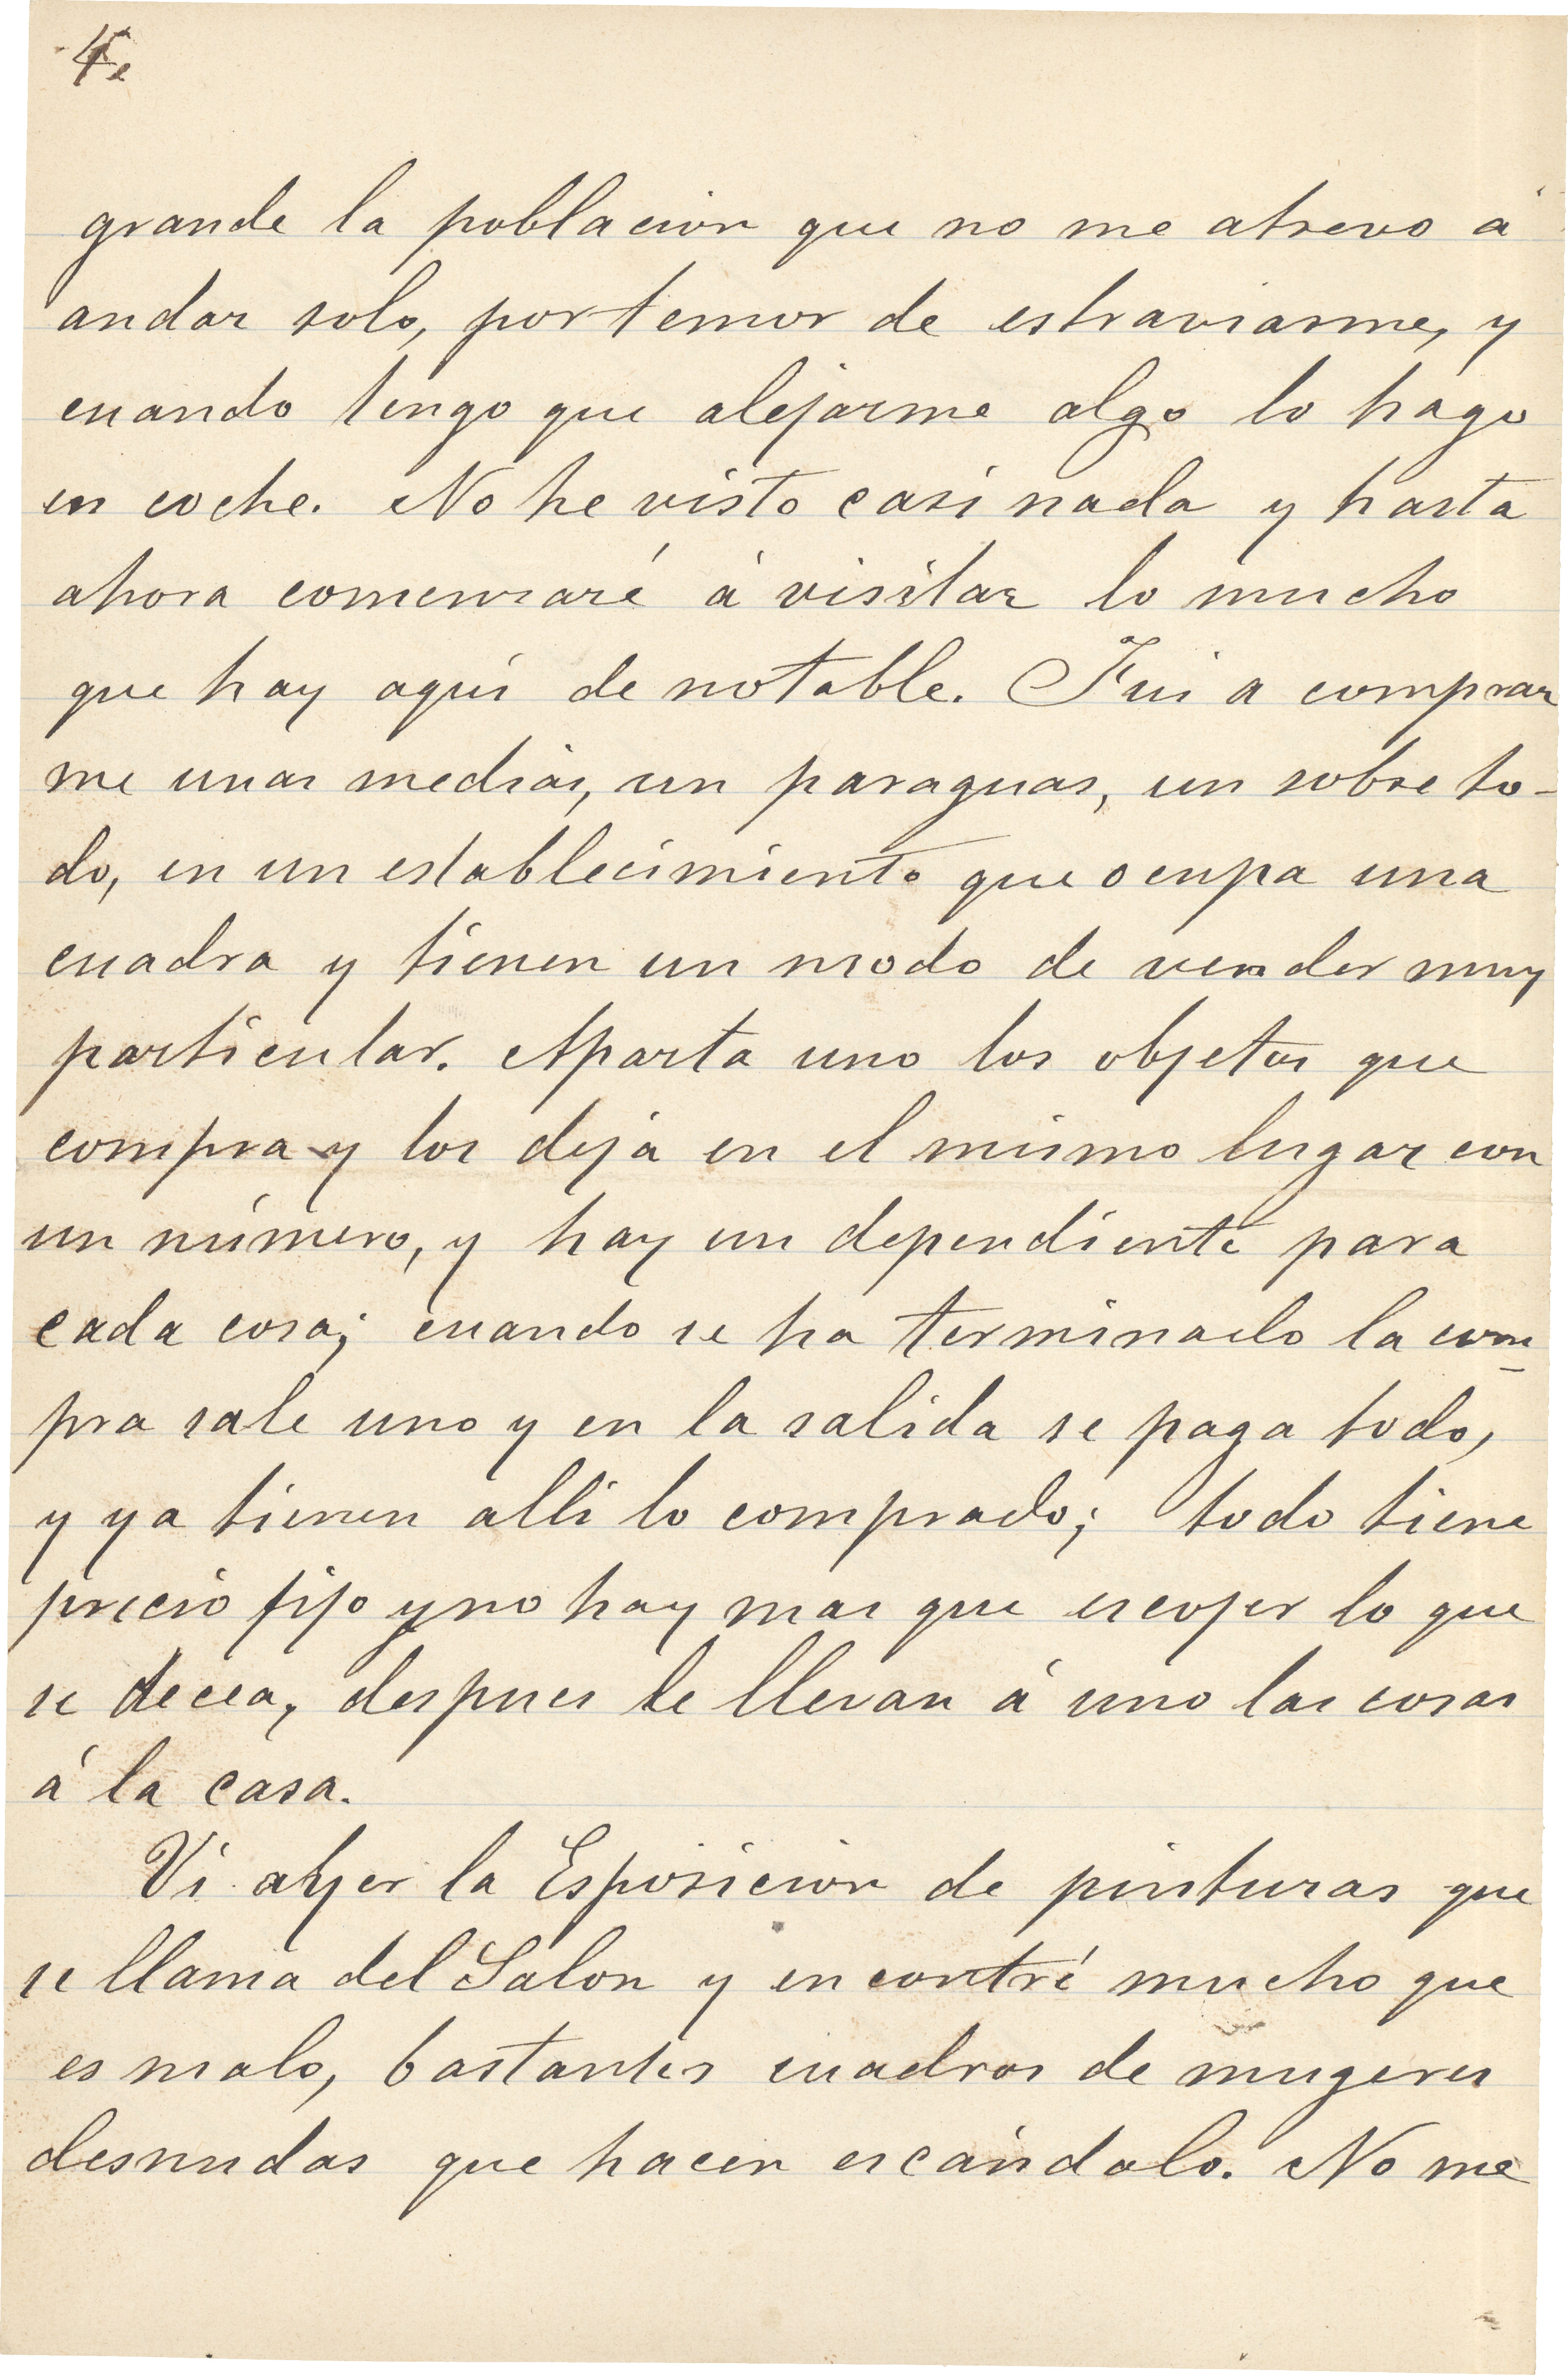 4.
grande la poblacion que no me atrevo á
andar solo, por temor de estraviarme, y
cuando tengo que alejarme algo lo hago
en coche. No he visto casi nada y hasta
ahora comenzaré á visitar lo mucho
que hay aquí de notable. Fui a comprar
me unas medias, un paraguas, un sobre to-
do, en un establecimiento que ocupa una
cuadra y tienen un modo de vender muy
particular. Aparta uno los objetos que
compra y los deja en el mismo lugar con
un número, y hay un dependiente para
cada cosa; cuando se ha terminado la com
pra sale uno y en la salida se paga todo,
y ya tienen alli lo comprado; todo tiene
precio fijo y no hay mas que escojer lo que
se decea, despues le llevan á uno las cosas
á la casa.
Vi ayer la Esposicion de pinturas que
se llama del Salon y encontré mucho que
es malo, bastantes cuadros de mugeres
desnudas que hacen escándalo. No me